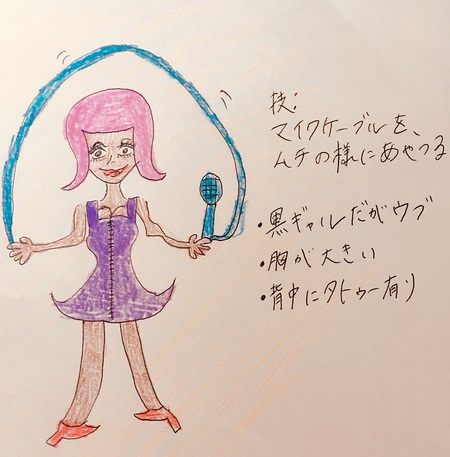 技:
マイクケーブルを、
ムチの様にあやつる
・黒ギャルだがウブ
・胸が大きい
・背中にタトゥー有り